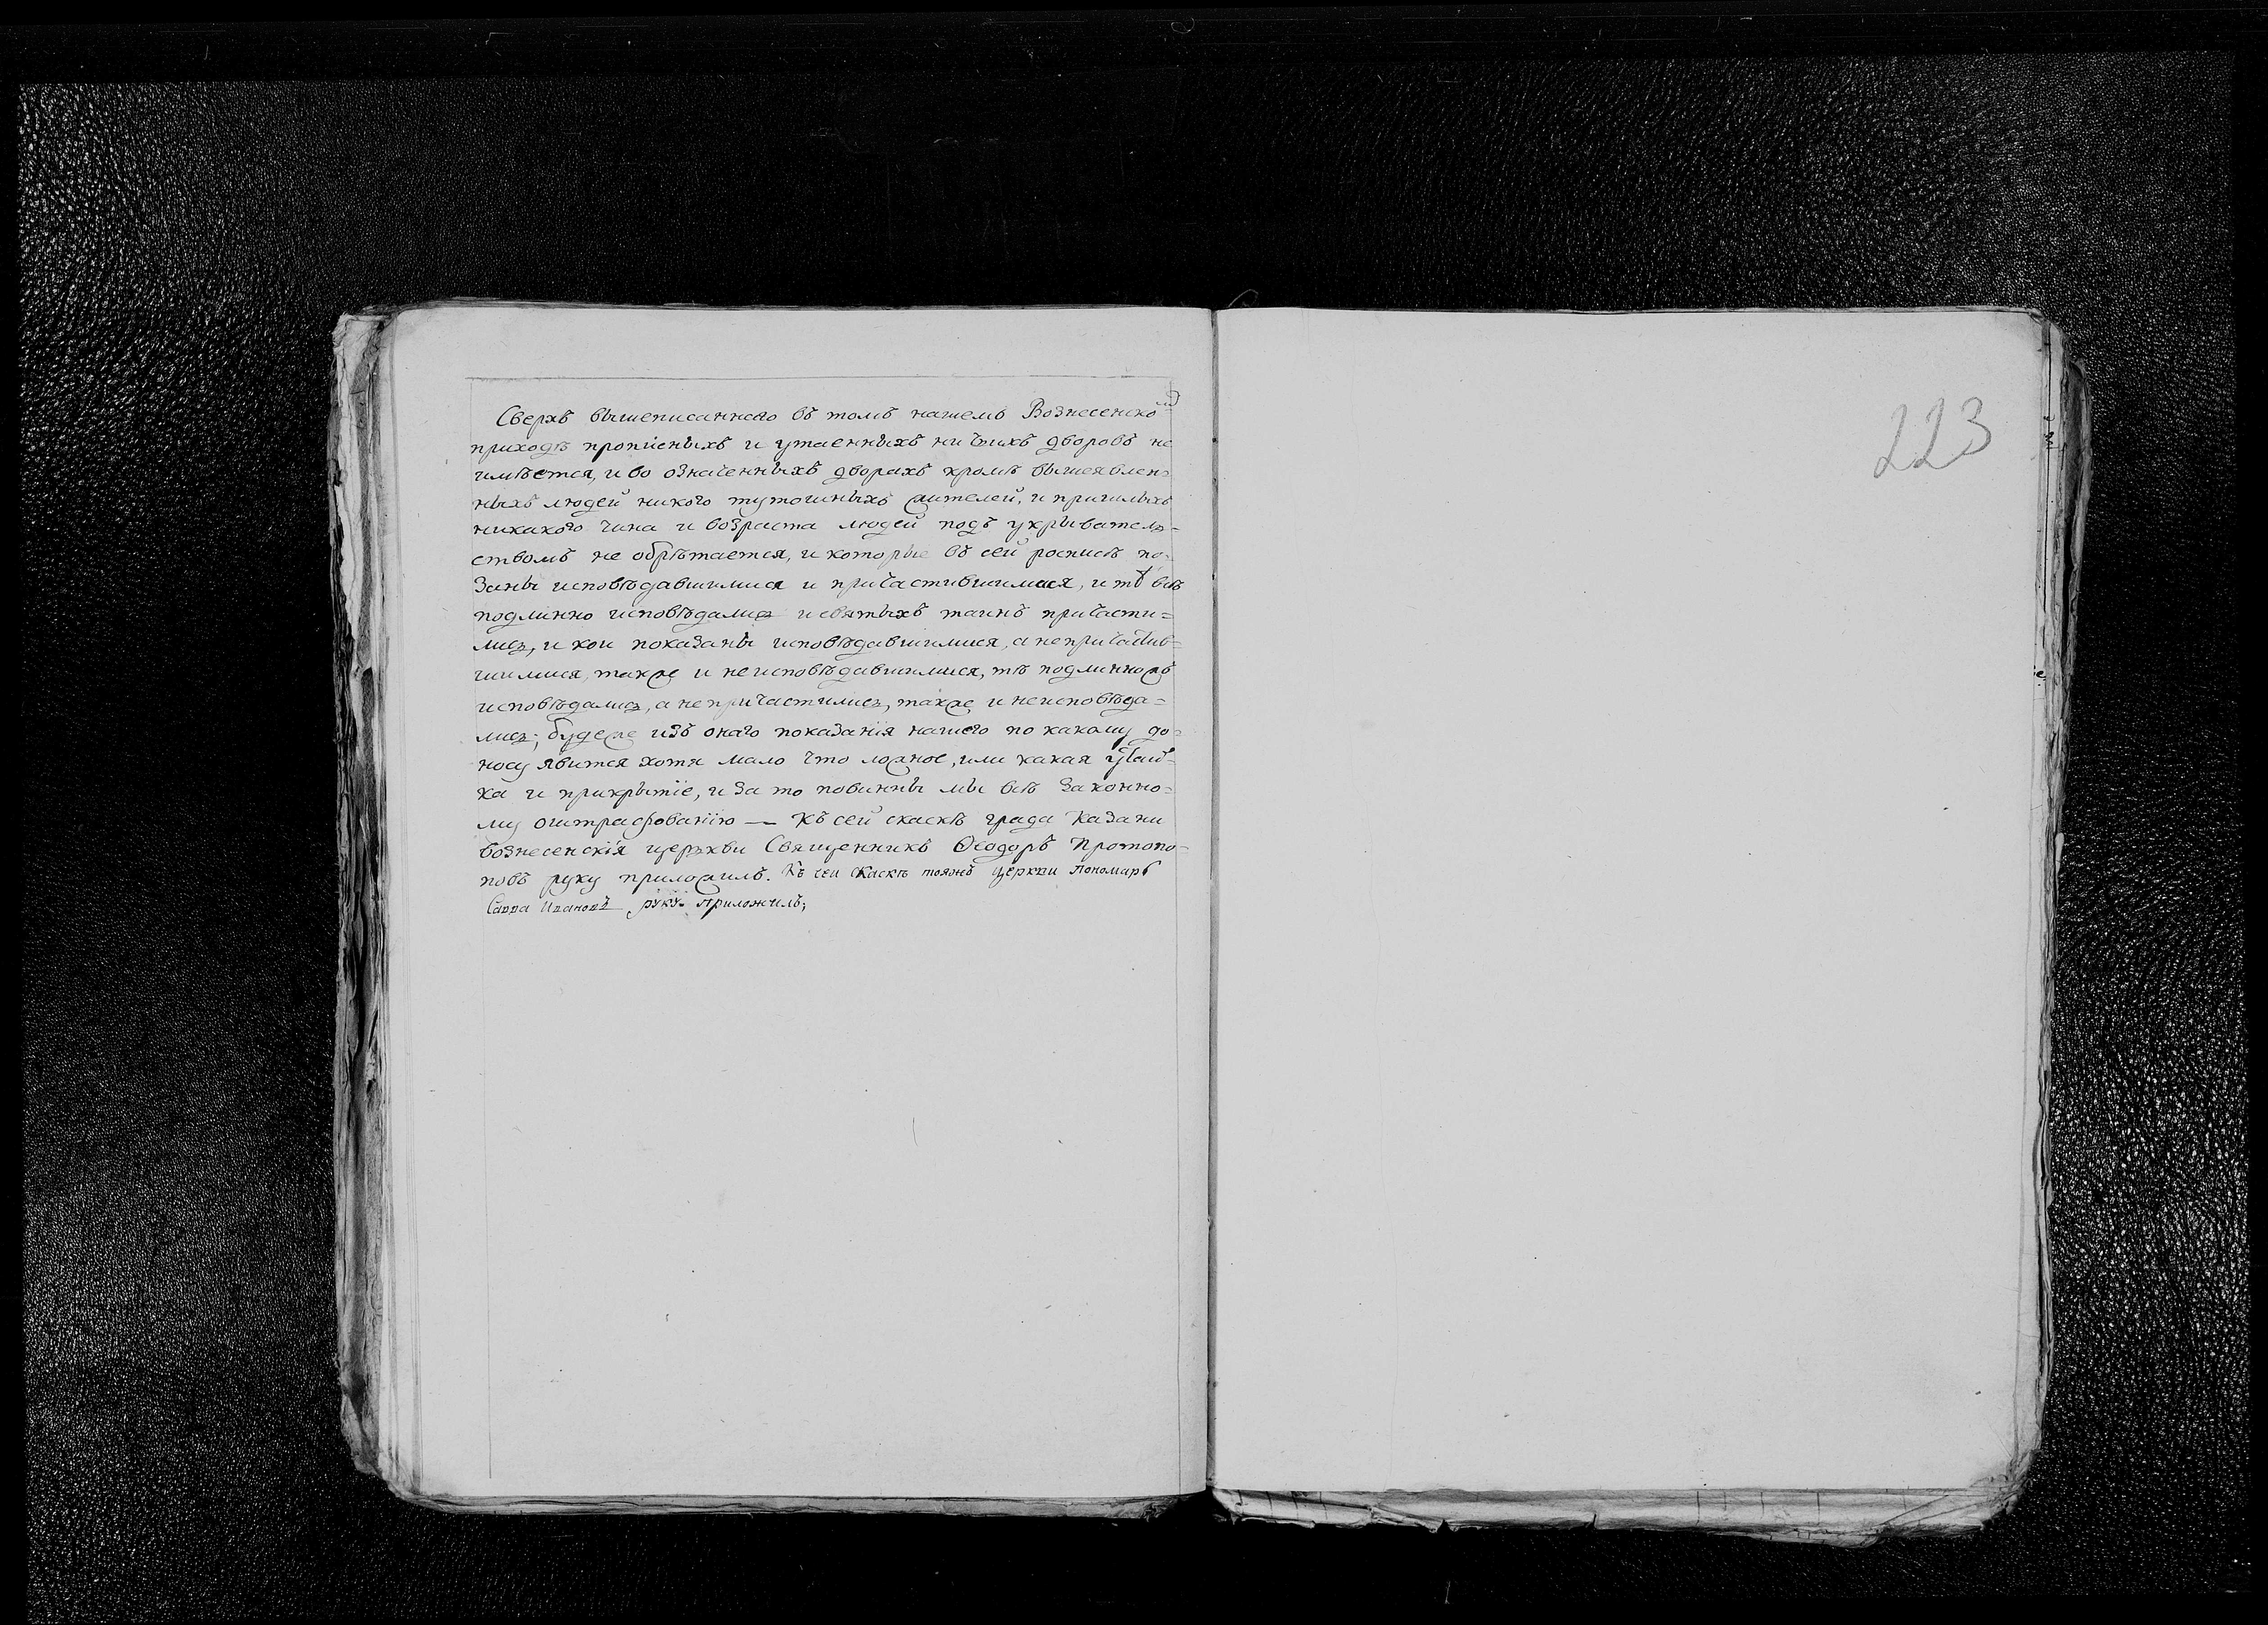 Сверхъ вышеписаннаго въ томъ нашемъ Вознесенскомъ
приходѣ прописныхъ и утаенныхъ ни чьихъ дворовъ не
имѣется, и во означенныхъ дворахъ кромѣ вышеявлен=
ныхъ людей никого тутошныхъ жителей, и пришлыхъ
никакого чина и возраста людей подъ укрыватель=
ствомъ не обрѣтается, и которые въ сей росписѣ по=
заны исповѣдавшимися и причастившимися, и тѣ всѣ
подлинно исповѣдались и святыхъ таинъ причасти=
лись, и кои показаны исповѣдавшимися, а непричастив=
шимися, также и неисповѣдавшимися, тѣ подлинножъ
исповѣдались, а непричастились, также и неисповѣда=
лись; будеже изъ онаго показанїя нашего по какому до=
носу явится хотя мало что ложное, или какая утай=
ка и прикрытїе, и за то повинны мы всѣ законно=
му оштрафованїю — Къ сей скаскѣ града Казани
вознесенскїя церькви Священникъ Ѳеодоръ Протопо=
повъ руку приложилъ. Къ сеи скаскѣ тояжъ церкви Пономарь
Савва Ивановъ руку приложилъ;
223